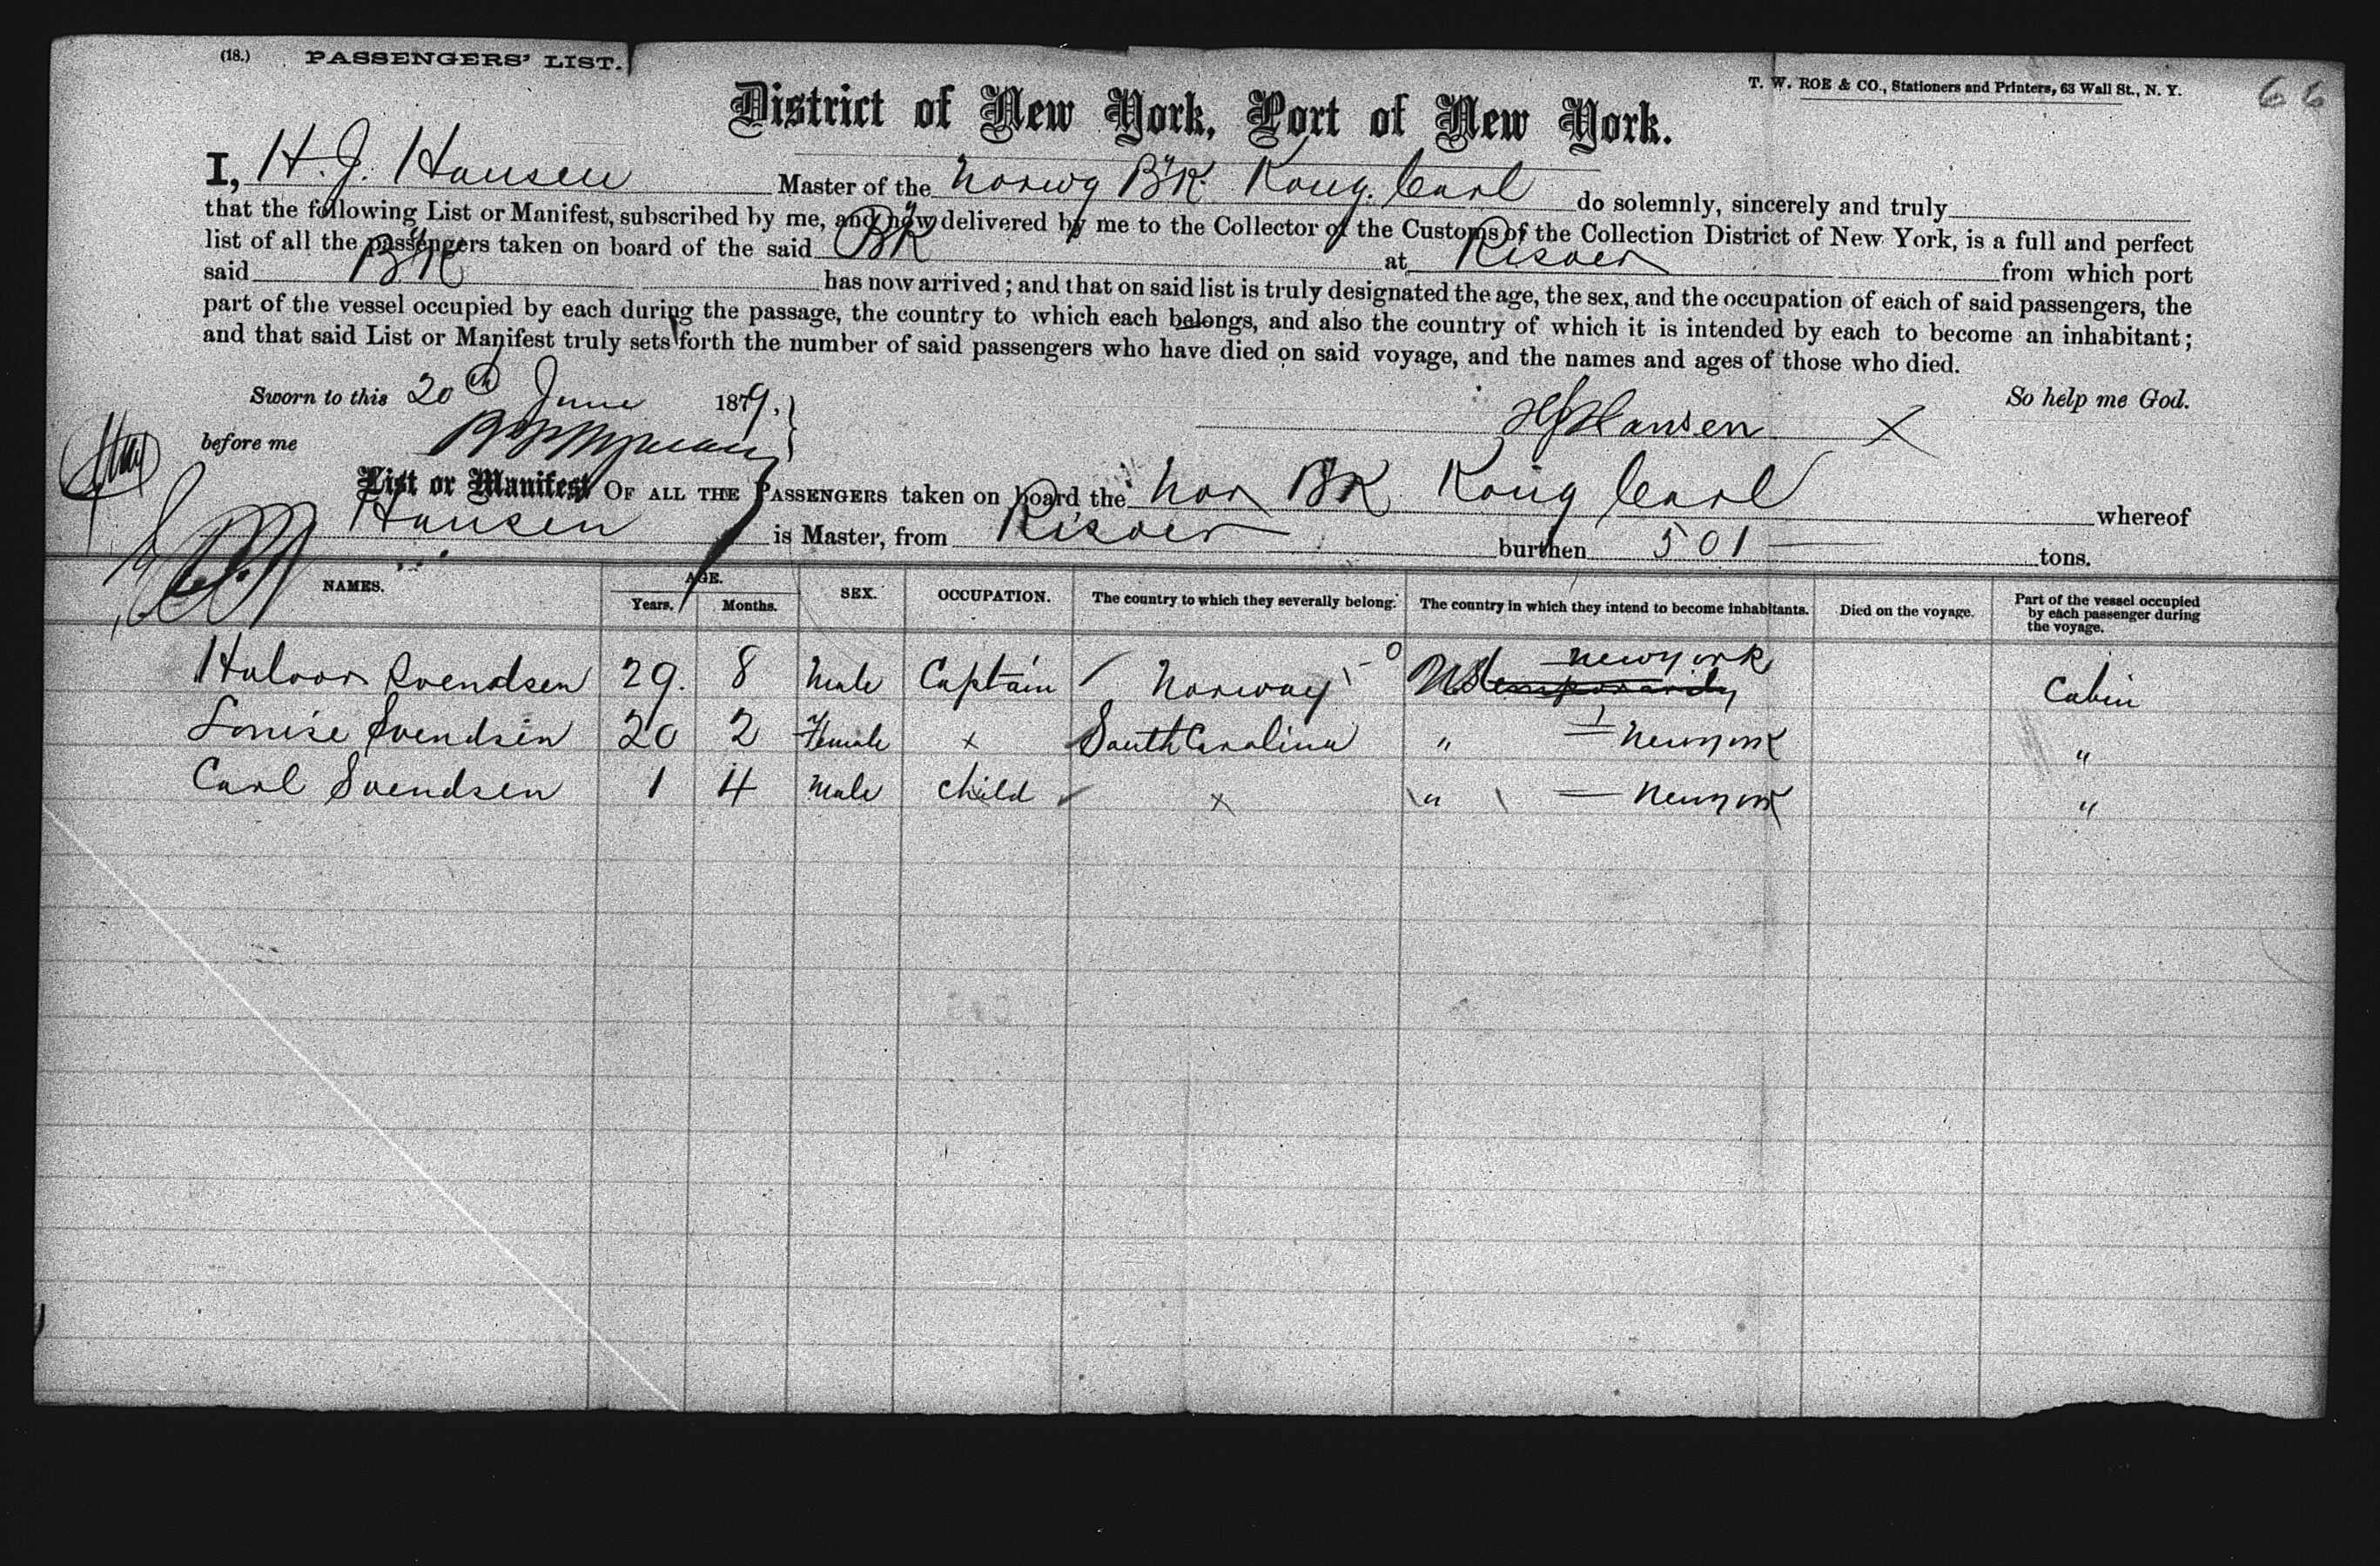 (18.) PASSENGERS' LIST.
T. W. ROE & CO., Stationers and Printers, 63 Wall St., N. Y.
66
District of New York, Port of New York.
I, H. J. Hansen Master of the Norwg Bk. Kong. Carl do solemnly, sincerely and truly
that the following List or Manifest, subscribed by me, and now delivered by me to the Collector of the Customs of the Collection District of New York, is a full and perfect
list of all the passengers taken on board of the said Bk at Risoer from which port
said Bk has now arrived; and that on said list is truly designated the age, the sex, and the occupation of each of said passengers, the
part of the vessel occupied by each during the passage, the country to which each belongs, and also the country of which it is intended by each to become an inhabitant;
and that said List or Manifest truly sets forth the number of said passengers who have died on said voyage, and the names and ages of those who died.
Sworn to this 20th June 1879, So help me God.
before me HJHansen X
List or Manifest OF ALL THE PASSENGERS taken on board the Nor BK Kong Carl whereof
Hansen is Master, from Risoer burthen 501 tons.
NAMES. AGE. Years. Months. SEX. OCCUPATION. The country to which they severally belong. The country in which they intend to become inhabitants. Died on the voyage. Part of the vessel occupied by each passenger during the voyage.
Halvor Svendsen 29. 8 Male Captain Norway US temporarily New york Cabin
Louise Svendsen 20 2 Female x South Carolina " New york "
Carl Svendsen 1 4 Male child x " New york "